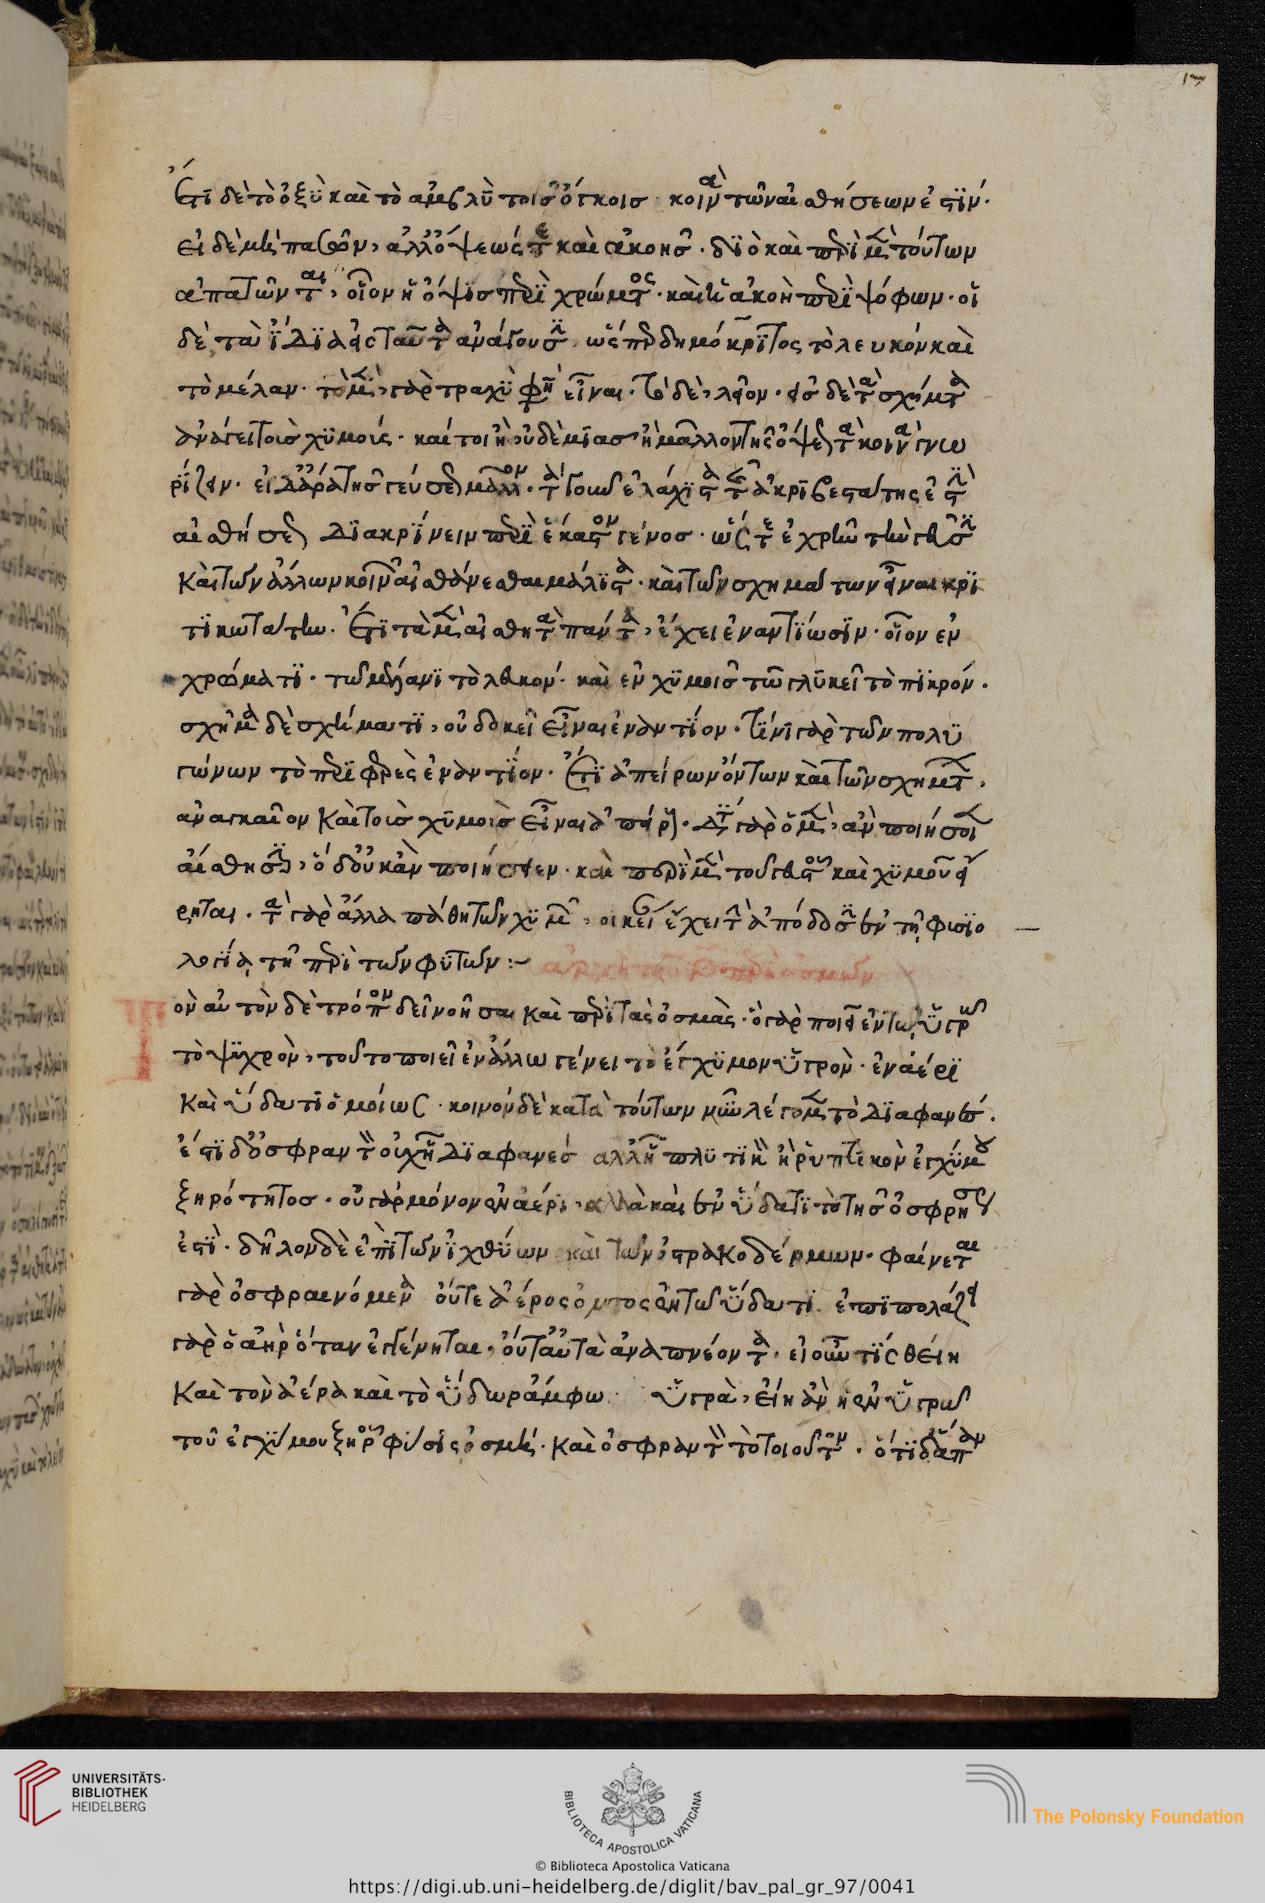 17
Ἔτι δὲ τὸ ὀξὺ καὶ τὸ ἀμβλὺ τοῖς ὄγκοις κοινὰ τῶν αἰσθήσεων ἐστϊν·
εἰ δὲ μὴ πασῶν, ἀλλ' ὄψεώς τε καὶ ἀκοῆς· δϊὸ καὶ περὶ μὲν τούτων
ἀπατῶνται, οἷον ἡ ὄψϊς περὶ χρώματος· καὶ ἡ ἀκοὴ περὶ ψόφων· οἱ
δὲ τὰ ἴδϊα εἰς ταῦτα ἀνάγουσϊ ὥσπερ δημόκρϊτος τὸ λευκὸν καὶ
τὸ μέλαν· τὸ μὲν γὰρ τραχὺ φησὶν εἶναι· τὸ δὲ, λεῖον· εἰς δὲ τὰ σχήματα
ἀνάγει τοὺς χϋμούς· καίτοι ἢ οὐδὲ μϊᾶς ἢ μᾶλλον τῆς ὄψεως τὰ κοινὰ γνω
ρίζειν· εἰ δ' ἄρα τῆς γεύσεως μᾶλλον· τὰ γοῦν ἐλάχιστα τῆς ἀκριβεστάτης ἐστὶν
αἰσθήσεως διακρίνειν περὶ ἕκαστον γένος· ὥστε ἐχρῆν τὴν γεῦσιν
καὶ τῶν ἄλλων κοινῶν αἰσθάνεσθαι μάλιστα· καὶ τῶν σχημάτων εἶναι κρι
τϊκωτάτην. Ἔτϊ τὰ μὲν αἰσθητὰ πάντα, ἔχει ἐναντίωσϊν· οἷον ἐν
χρώματϊ· τῶ μέλανϊ τὸ λευκόν· καὶ ἐν χϋμοῖς τῶ γλυκεῖ τὸ πϊκρόν.
σχῆμα δὲ σχήματϊ, οὐ δοκεῖ εἶναι ἐναντίον· τίνϊ γὰρ τῶν πολυ
γώνων τὸ περιφερὲς ἐναντίον· Ἔτϊ ἀπείρων ὄντων καὶ τῶν σχημάτων,
ἀναγκαῖον καὶ τοὺς χϋμοὺς εἶναι ἀπείρους· διὰ τί γὰρ ὁ μὲν, ἂν ποιήσοι
αἴσθησιν, ὁ δ' οὐκ ἂν ποιήσειεν· καὶ περὶ μὲν τοῦ γευστοῦ καὶ χϋμοῦ εἴ
ρηται· τὰ γὰρ ἄλλα πάθη τῶν χϋμῶν, οἰκείαν ἔχει τὴν ἀπόδοσιν ἐν τῇ φυσϊο
λογίᾳ τῇ περὶ τῶν φϋτῶν:~
Τὸν αὐτὸν δὲ τρόπον δεῖ νοῆσαι καὶ περὶ τὰς ὀσμὰς· ὃ γὰρ ποιεῖ ἐν τῶ ὑγρῶ
τὸ ψϋχρὸν, τοῦτο ποιεῖ ἐν ἄλλω γένει τὸ ἔγχϋμον ὑγρὸν· ἐν ἀέρϊ
καὶ ὕδατϊ ὁμοίως· κοινὸν δὲ κατὰ τούτων νῦν λέγομεν τὸ διαφανὲς.
ἔστϊ δ' ὀσφραντὸν οὐχ ἧ διαφανὲς ἀλλ' ἧ πλυτϊκὸν ἢ ῥυπτϊκὸν ἐγχύμου
ξηρότητος· οὐ γὰρ μόνον ἐν ἀέρι, ἀλλὰ καὶ ἐν ὕδατϊ τὸ τῆς ὀσφρήσεως
ἐστϊ· δῆλον δὲ ἐπὶ τῶν ἰχθύων καὶ τῶν ὀστρακοδέρμων· φαίνεται
γὰρ ὀσφραινόμενα οὔτε ἀέρος ὄντος ἐν τῶ ὕδατϊ. ἐπϊπολάζει
γὰρ ὁ ἀὴρ ὅταν ἐγγένηται· οὔτ' αὐτὰ ἀναπνέοντα· εἰ οὖν τϊς θείη
καὶ τὸν ἀέρα καὶ τὸ ὕδωρ ἄμφω ὑγρὰ, εἴη ἂν ἡ ἐν ὑγρῶ
τοῦ ἐγχύμου ξηροῦ φύσις ὀσμή· καὶ ὀσφραντὸν τὸ τοιοῦτον· ὅτϊ δ' ἀπ
UNIVERSITÄTS-
BIBLIOTHEK
HEIDELBERG
BIBLIOTECA APOSTOLICA VATICANA
The Polonsky Foundation
© Biblioteca Apostolica Vaticana
https://digi.ub.uni-heidelberg.de/diglit/bav_pal_gr_97/0041